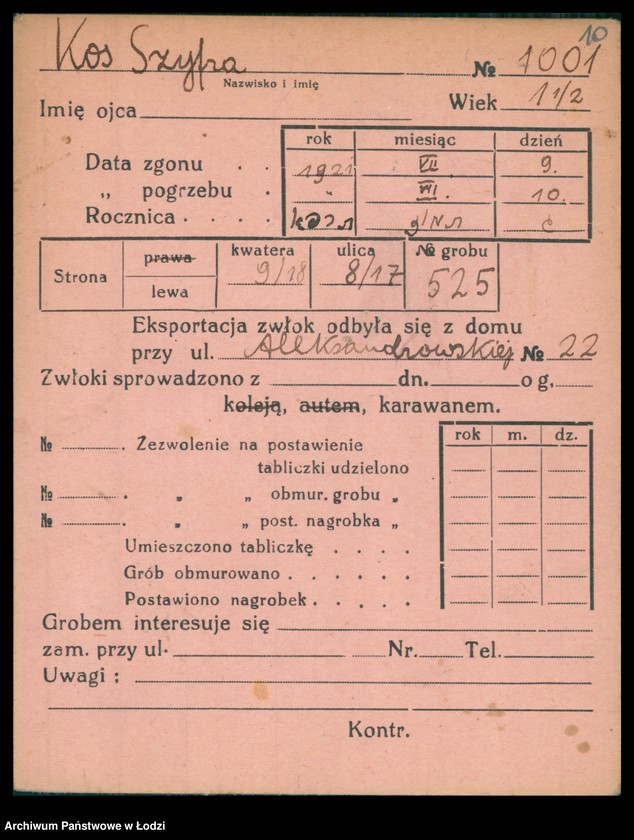 10
Kos Szyfra № 1001
Nazwisko i imię
Imię ojca Wiek 1 1/2
rok miesiąc dzień
Data zgonu . . 1921 VII 9.
„ pogrzebu . „ 10.
Rocznica . . . .
Strona prawa lewa kwatera 9/18 ulica 8/17 № grobu 525
Eksportacja zwłok odbyła się z domu
przy ul. Aleksandrowskiej № 22
Zwłoki sprowadzono z dn. o g.
koleją, autem, karawanem.
rok m. dz.
№ . Zezwolenie na postawienie
tabliczki udzielono
№ . „ „ obmur. grobu „
№ . „ „ post. nagrobka „
Umieszczono tabliczkę . . . .
Grób obmurowano . . . . . .
Postawiono nagrobek . . . . .
Grobem interesuje się
zam. przy ul. Nr. Tel.
Uwagi :
Kontr.
Archiwum Państwowe w Łodzi